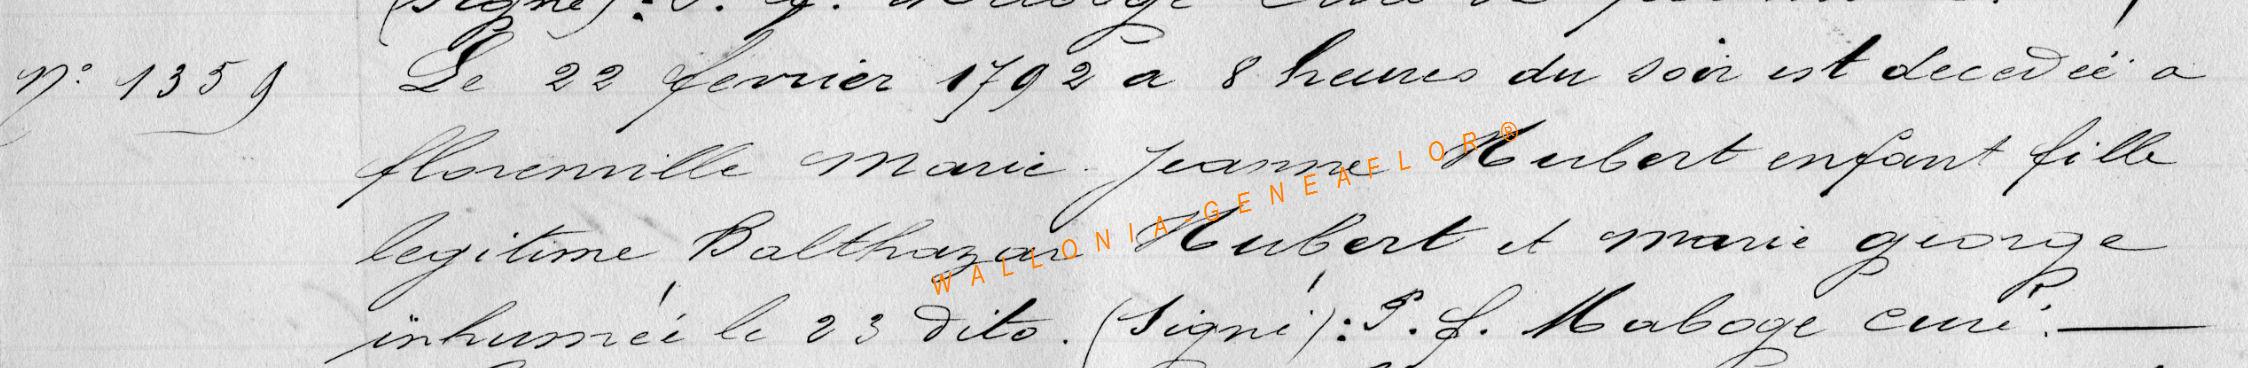 n° 1359 Le 22 fevrier 1792 a 8 heures du soir est decedéé a
florenville Marie Jeanne Hubert enfant fille
legitime Balthazar Hubert et marie george
inhuméé le 23 dito. (Signé): P. f. Maboge curé.
WALLONIA-GENEAFLOR®